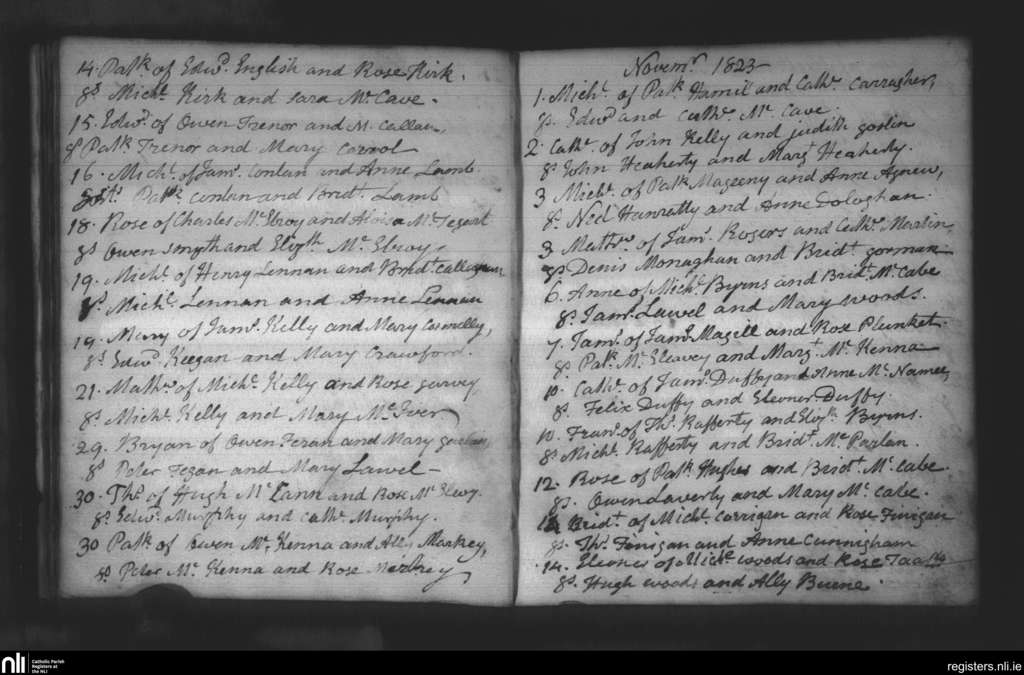 14. Patk. of Edwd. English and Rose Kirk.
gs Michl. Kirk and Sara Mc Cave.
15. Edwd. of Owen Trenor and M. Callan,
gs Patk Trenor and Mary Carrol
16. Michl. of Jams. Conlan and Anne Lamb.
Patk. conlan and Bridt. Lamb
18. Rose of Charles Mc Elroy and Mc Tegart
gs Owen smyth and Elizth. Mc Elroy,
19. Michl. of Henry Lennan and Bridt. callaghan
gs. Michl. Lennan and Anne Lennan
19. Mary of Jams. Kelly and Mary Connelly,
gs Edwd. Keegan and Mary Crawford.
21. Mathw. of Michl. Kelly and Rose garvey
gs Michl. Kelly and Mary Mc Iver
29. Bryan of Owen and Mary
gs Peter Fegan and Mary Lawel -
30. Ths. of Hugh Mc Cann and Rose Mc Elroy.
gs Edwd. Murphy and Cathe. Murphy.
30 Patk. of Owen Mc Kenna and Ally Markey,
gs Peter Mc Kenna and Rose
Novemr. 1823
1. Michl. of Patk. Hamil and Cathe. Carragher,
gs. Edwd and Cathe. Mc Cave.
2. Cathe. of John Kelly and judith goslin
gs John Heaherty and Margt Heaherty.
3 Michl. of Patk Mageeny and Anne Agnew,
gs. Neel Hanratty and Anne
3. Mattw. of Jams. Rogers and Cathe. Martin,
gs Denis Monaghan and Bridt. gorman
6. Anne of Michl. Byrns and Bridt. Mc Cabe
gs. Jams. Lawel and Mary woods.
7. Jams. of Jams. Magill and Rose Plunket.
gs Patk. Mc Eleavey and Margt. Mc Kenna
10. Cathe. of Jams. Duffy and Anne Mc Namee,
gs. Felix Duffy and Eleoner Duffy
10. Frans. of Ths. Rafferty and Elizth. Byrns.
gs Michl. Rafferty and Bridt. Mc Parlan.
12. Rose of Patk. Hughes and Bridt. Mc. Cabe.
gs. Owen Laverty and Mary Mc. Cabe.
Bridt. of Michl. Corrigan and Rose Finigan
gs. Ths. Finigan and Anne Cunningham
14. Eleoner of Michl. woods and Rose
gs. Hugh woods and Ally Burne.
nli
Catholic Parish
Registers at
the NLI
registers.nli.ie